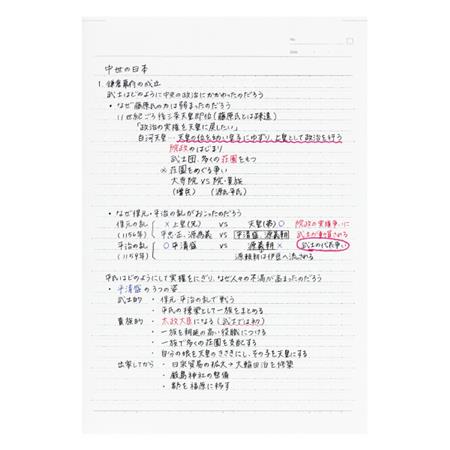 No.
Date
中世の日本
1. 鎌倉幕府の成立
武士はどのように中央の政治にかかわったのだろう
・なぜ藤原氏の力は弱まったのだろう
11世紀ごろ 後三条天皇即位(藤原氏とは疎遠)
「政治の実権を天皇に戻したい」
白河天皇…天皇の位を幼い皇子にゆずり、上皇として政治を行う
院政のはじまり
武士団、多くの荘園をもつ
※荘園をめぐる争い
大寺院 VS 院・貴族
(僧兵) (源氏・平氏)
・なぜ保元・平治の乱がおこったのだろう
保元の乱 ×上皇(兄) vs 天皇(弟)○ 院政の実権争いに
(1156年) 平忠正、源為義 vs 平清盛、源義朝 武士が動員される
平治の乱 ○平清盛 vs 源義朝× 武士の代表争い
(1159年) 源頼朝は伊豆へ流される
平氏はどのようにして実権をにぎり、なぜ人々の不満が高まったのだろう
・平清盛の3つの姿
武士的 ・保元・平治の乱で戦う
・平氏の棟梁として一族をまとめる
貴族的 ・太政大臣になる(武士では初)
・一族を朝廷の高い役職につける
・一族で多くの荘園を支配する
・自分の娘を天皇のきさきにし、その子を天皇にする
出家してから ・日宋貿易の拡大→大輪田泊を修築
・厳島神社の整備
・都を福原に移す